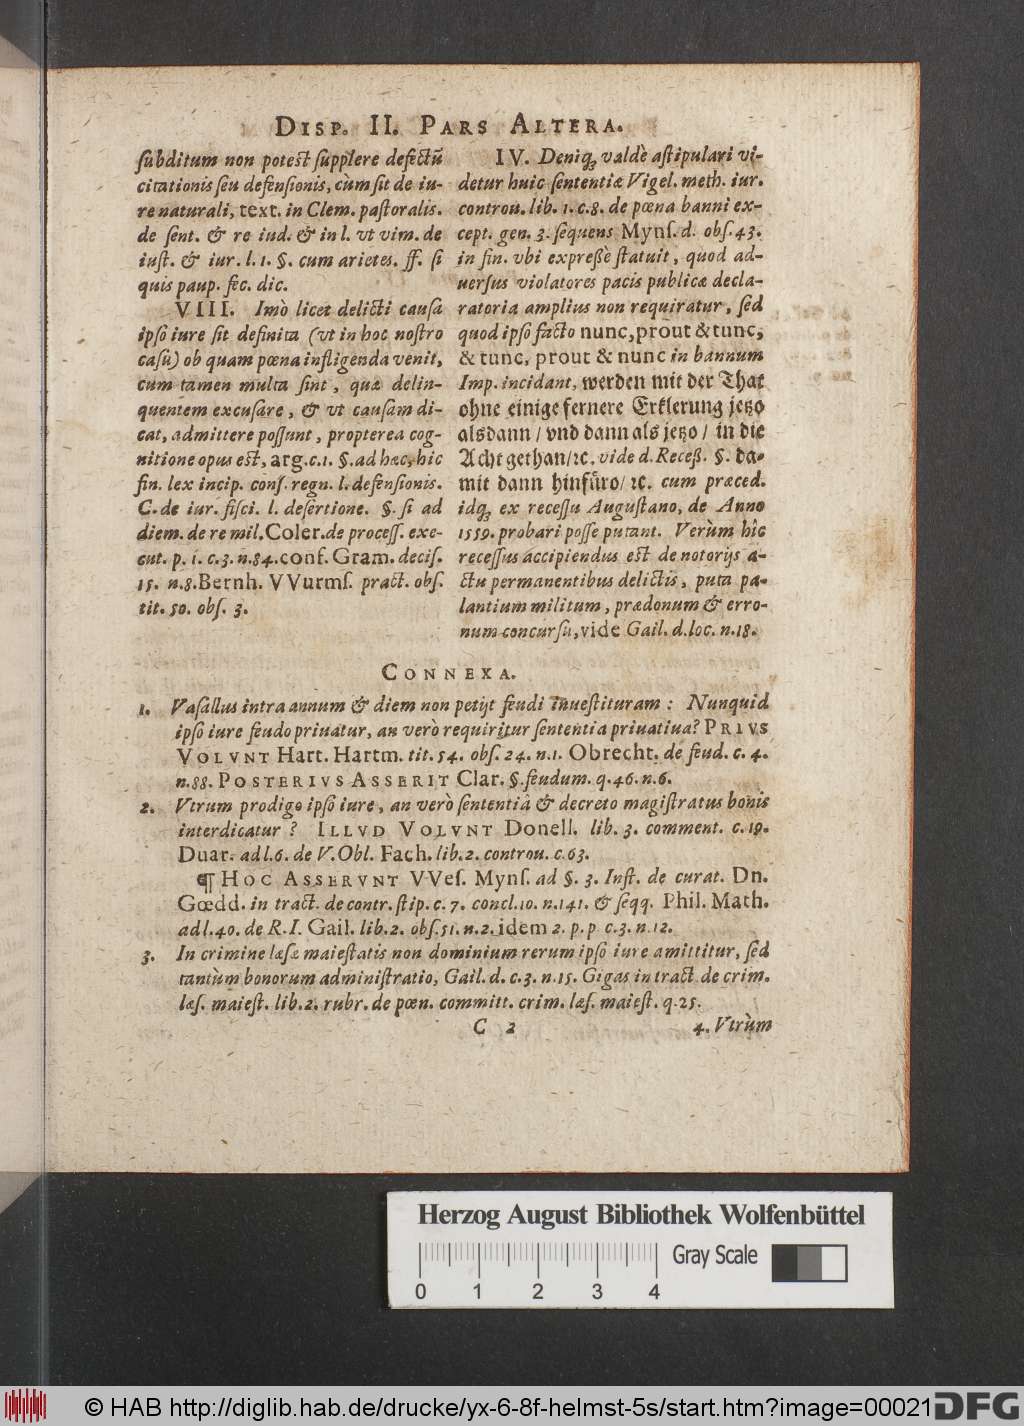 DISP. II. PARS ALTERA.
ſubditum non poteſt ſupplere defectū
citationis ſeu defenſionis, cùm ſit de iu-
re naturali, text. in Clem. paſtoralis.
de ſent. & re iud. & in l. vt vim. de
iuſt. & iur. l. 1. §. cum arietes. ff. ſi
quis paup. fec. dic.
VIII. Imò licet delicti cauſa
ipſo iure ſit definita (vt in hoc noſtro
caſu) ob quam pœna infligenda venit,
cum tamen multa ſint, quæ delin-
quentem excuſare, & vt cauſam di-
cat, admittere poſſunt, propterea cog-
nitione opus eſt, arg. c. 1. §. ad hæc, hic
fin. lex incip. conſ. regn. l. defenſionis.
C. de iur. fiſci. l. deſertione. §. ſi ad
diem. de re mil. Coler. de proceſſ. exe-
cut. p. 1. c. 3. n. 84. conf. Gram. deciſ.
15. n. 8. Bernh. VVurmſ. pract. obſ.
tit. 50. obſ. 3.
IV. Deniq; valdè aſtipulari vi-
detur huic ſententiæ Vigel. meth. iur.
controu. lib. 1. c. 8. de pœna banni ex-
cept. gen. 3. ſequens Mynſ. d. obſ. 43.
in fin. vbi expreßè ſtatuit, quod ad-
uerſus violatores pacis publicæ decla-
ratoria amplius non requiratur, ſed
quod ipſo facto nunc, prout & tunc,
& tunc, prout & nunc in bannum
Imp. incidant, werden mit der That
ohne einige fernere Erklerung jetzo
alsdann / vnd dann als jetzo / in die
Acht gethan/ ꝛc. vide d. Receß. §. da-
mit dann hinfüro/ ꝛc. cum præced.
idq; ex receſſu Auguſtano, de Anno
1559. probari poſſe putant. Verùm hîc
receſſus accipiendus eſt de notorijs a-
ctu permanentibus delictis, puta pa-
lantium militum, prædonum & erro-
num concurſu, vide Gail. d. loc. n. 18.
CONNEXA.
1. Vaſallus intra annum & diem non petijt feudi inueſtituram: Nunquid
ipſo iure feudo priuatur, an verò requiritur ſententia priuatiua? PRIVS
VOLVNT Hart. Hartm. tit. 54. obſ. 24. n. 1. Obrecht. de feud. c. 4.
n. 88. POSTERIVS ASSERIT Clar. §. feudum. q. 46. n. 6.
2. Vtrum prodigo ipſo iure, an verò ſententiâ & decreto magiſtratus bonis
interdicatur? ILLVD VOLVNT Donell. lib. 3. comment. c. 19.
Duar. ad l. 6. de V. Obl. Fach. lib. 2. controu. c. 63.
¶ HOC ASSERVNT VVeſ. Mynſ. ad §. 3. Inſt. de curat. Dn.
Gœdd. in tract. de contr. ſtip. c. 7. concl. 10. n. 141. & ſeqq. Phil. Math.
ad l. 40. de R. I. Gail. lib. 2. obſ. 51. n. 2. idem 2. p. p c. 3. n. 12.
3. In crimine læſæ maieſtatis non dominium rerum ipſo iure amittitur, ſed
tantùm bonorum adminiſtratio, Gail. d. c. 3. n. 15. Gigas in tract. de crim.
læſ. maieſt. lib. 2. rubr. de pœn. committ. crim. læſ. maieſt. q. 25.
C 2
4. Vtrùm
Herzog August Bibliothek Wolfenbüttel
Gray Scale
0 1 2 3 4
© HAB http://diglib.hab.de/drucke/yx-6-8f-helmst-5s/start.htm?image=00021
DFG